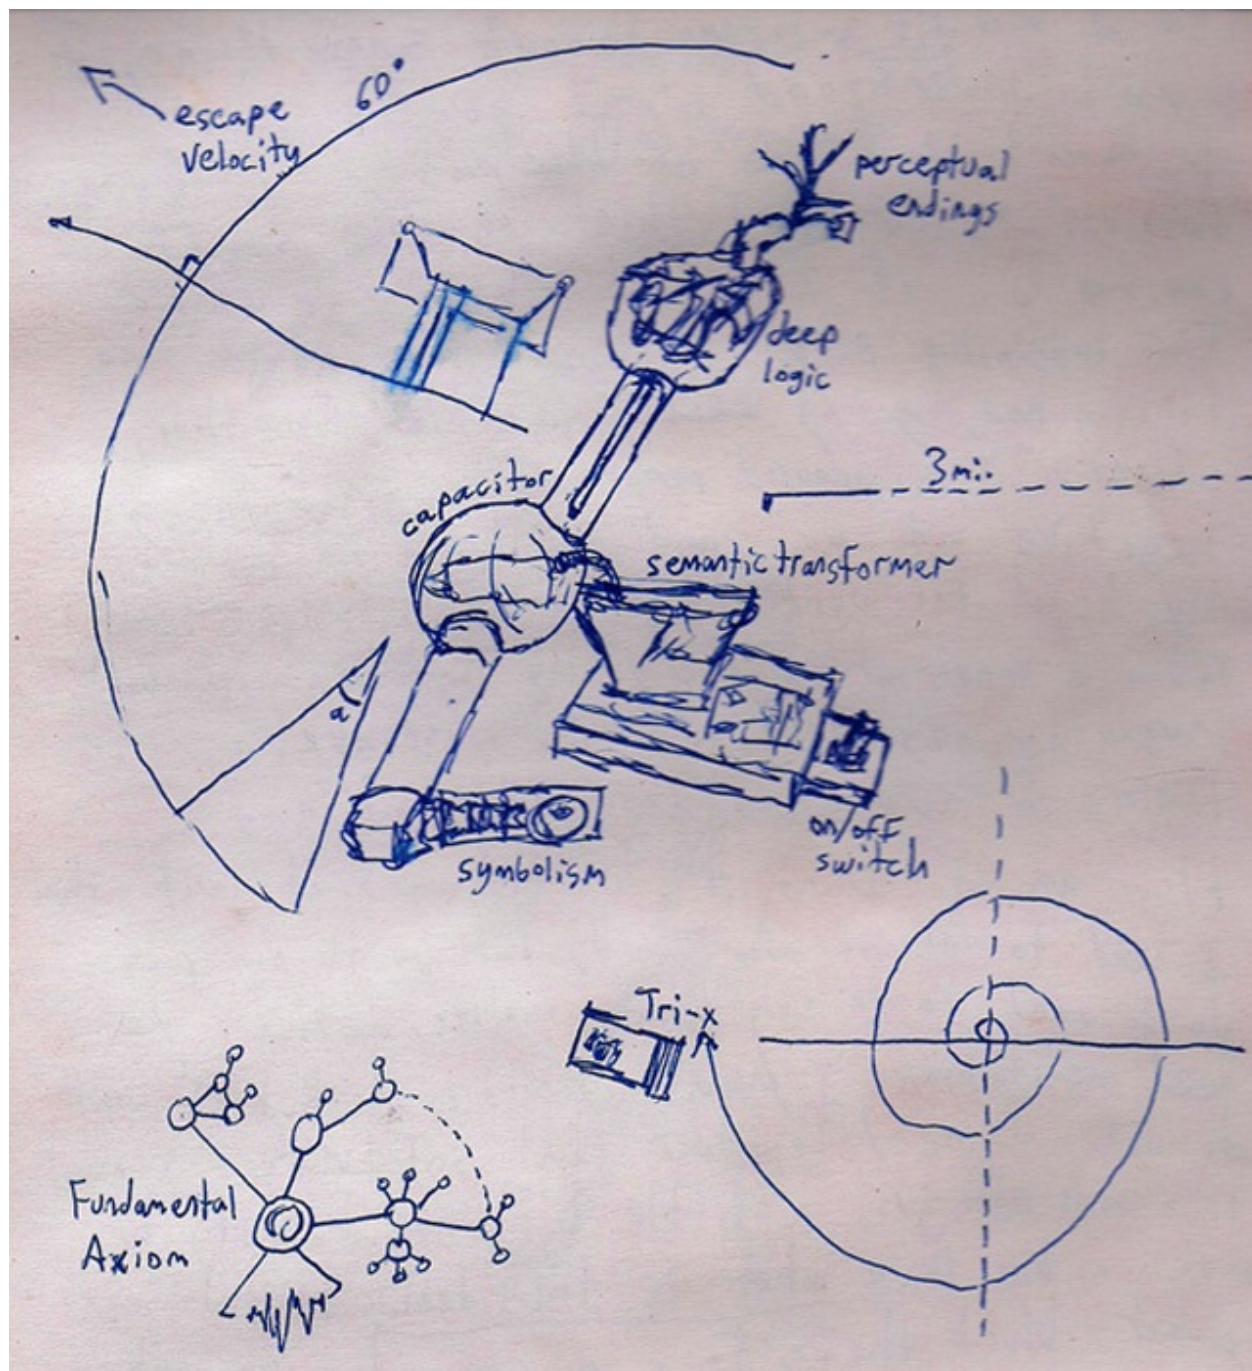 60°
escape
velocity
perceptual
endings
deep
logic
3 mi.
capacitor
semantic transformer
a
on/off
switch
symbolism
Tri-x
Fundamental
Axiom